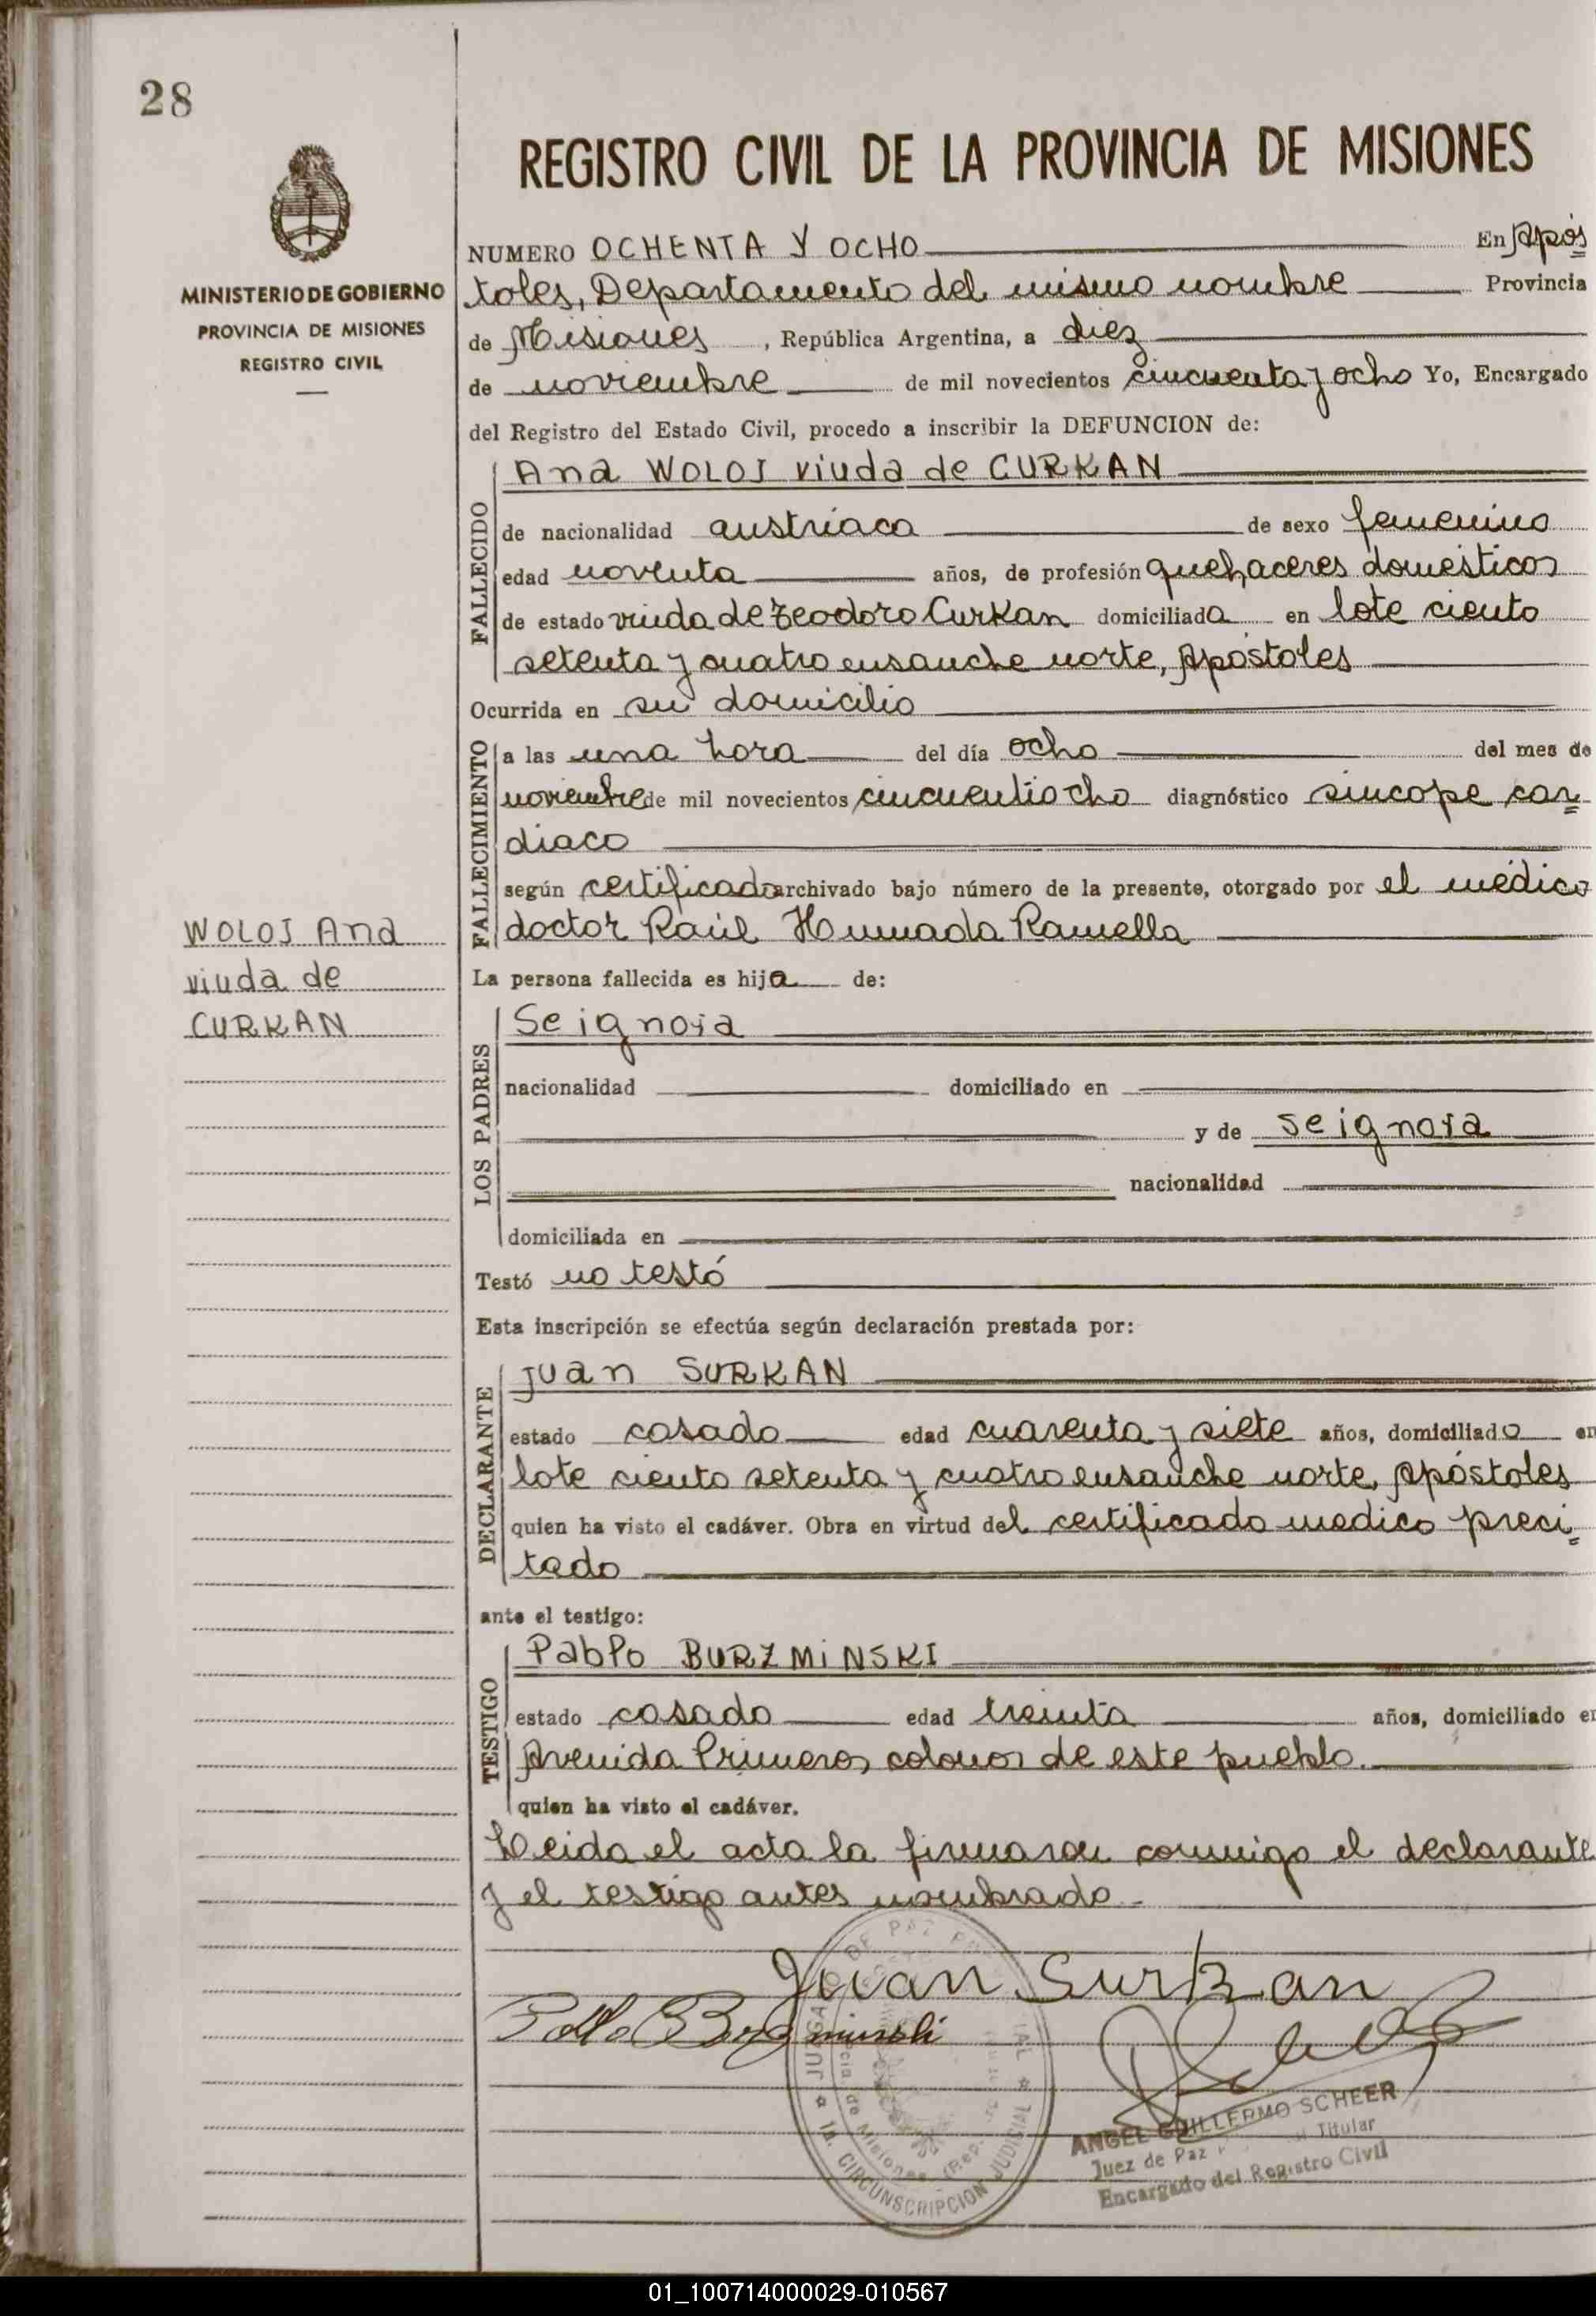 28
REGISTRO CIVIL DE LA PROVINCIA DE MISIONES
MINISTERIO DE GOBIERNO
PROVINCIA DE MISIONES
REGISTRO CIVIL
NUMERO OCHENTA Y OCHO En Após
toles, Departamento del mismo nombre Provincia
de Misiones, República Argentina, a diez
de noviembre de mil novecientos cincuenta y ocho Yo, Encargado
del Registro del Estado Civil, procedo a inscribir la DEFUNCION de:
FALLECIDO
Ana WOLOS viuda de CURKAN
de nacionalidad austríaca de sexo femenino
edad noventa años, de profesión quehaceres domésticos
de estado viuda de Teodoro Curkan domiciliada en lote ciento
setenta y cuatro ensanche norte, Apóstoles
Ocurrida en su domicilio
FALLECIMIENTO
a las una hora del día ocho del mes de
noviembre de mil novecientos cincuentiocho diagnóstico síncope car
díaco
según certificado archivado bajo número de la presente, otorgado por el médico
doctor Raúl Humada Ramella
WOLOS Ana
viuda de
CURKAN
La persona fallecida es hija de:
LOS PADRES
Se ignora
nacionalidad domiciliado en
y de se ignora
nacionalidad
domiciliada en
Testó no testó
Esta inscripción se efectúa según declaración prestada por:
DECLARANTE
Juan SURKAN
estado casado edad cuarenta y siete años, domiciliado en
lote ciento setenta y cuatro ensanche norte, Apóstoles
quien ha visto el cadáver. Obra en virtud del certificado medico preci
tado
ante el testigo:
TESTIGO
Pablo BURZMINSKI
estado casado edad treinta años, domiciliado en
Avenida Primeros colonos de este pueblo.
quien ha visto el cadáver.
Leida el acta la firmaron conmigo el declarante
y el testigo antes nombrado.
Juan Surkan
JUZGADO DE PAZ
1a. CIRCUNSCRIPCION JUDICIAL
de Misiones (Rep.
ANGEL GUILLERMO SCHEER
Juez de Paz Titular
Encargado del Registro Civil
01_100714000029-010567